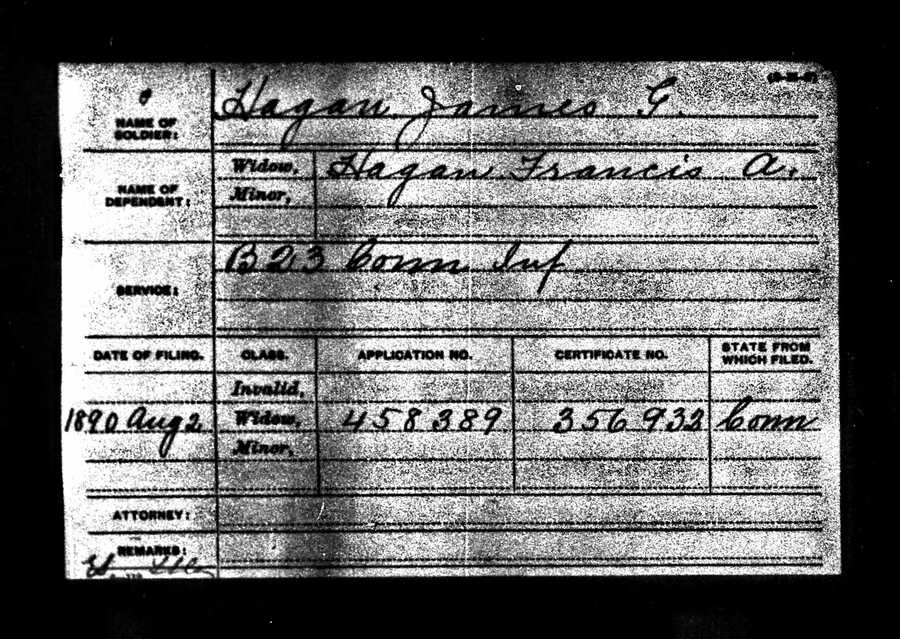 NAME OF SOLDIER: Hagan James G.
NAME OF DEPENDENT: Widow, Hagan Francis A.
Minor,
SERVICE: B 23 Conn Inf
DATE OF FILING. CLASS. APPLICATION NO. CERTIFICATE NO. STATE FROM WHICH FILED.
Invalid,
1890 Aug 2 Widow, 458389 356932 Conn
Minor,
ATTORNEY:
REMARKS: